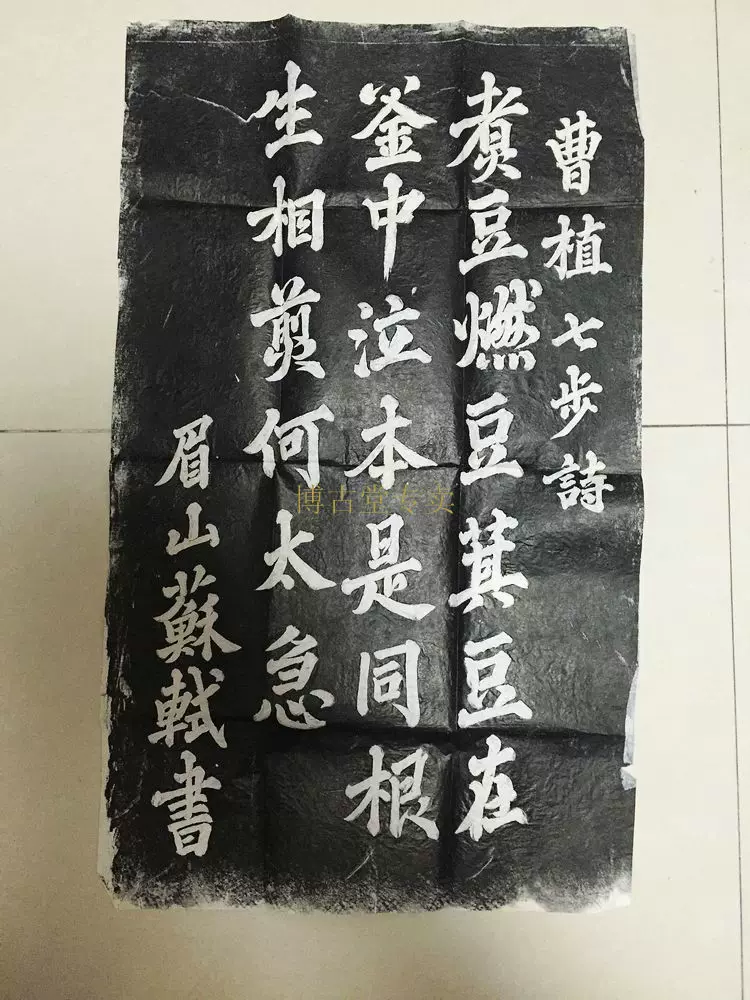 曹植七步詩
煑豆燃豆萁豆在
釜中泣本是同根
生相煎何太急
眉山蘇軾書
博古堂专卖